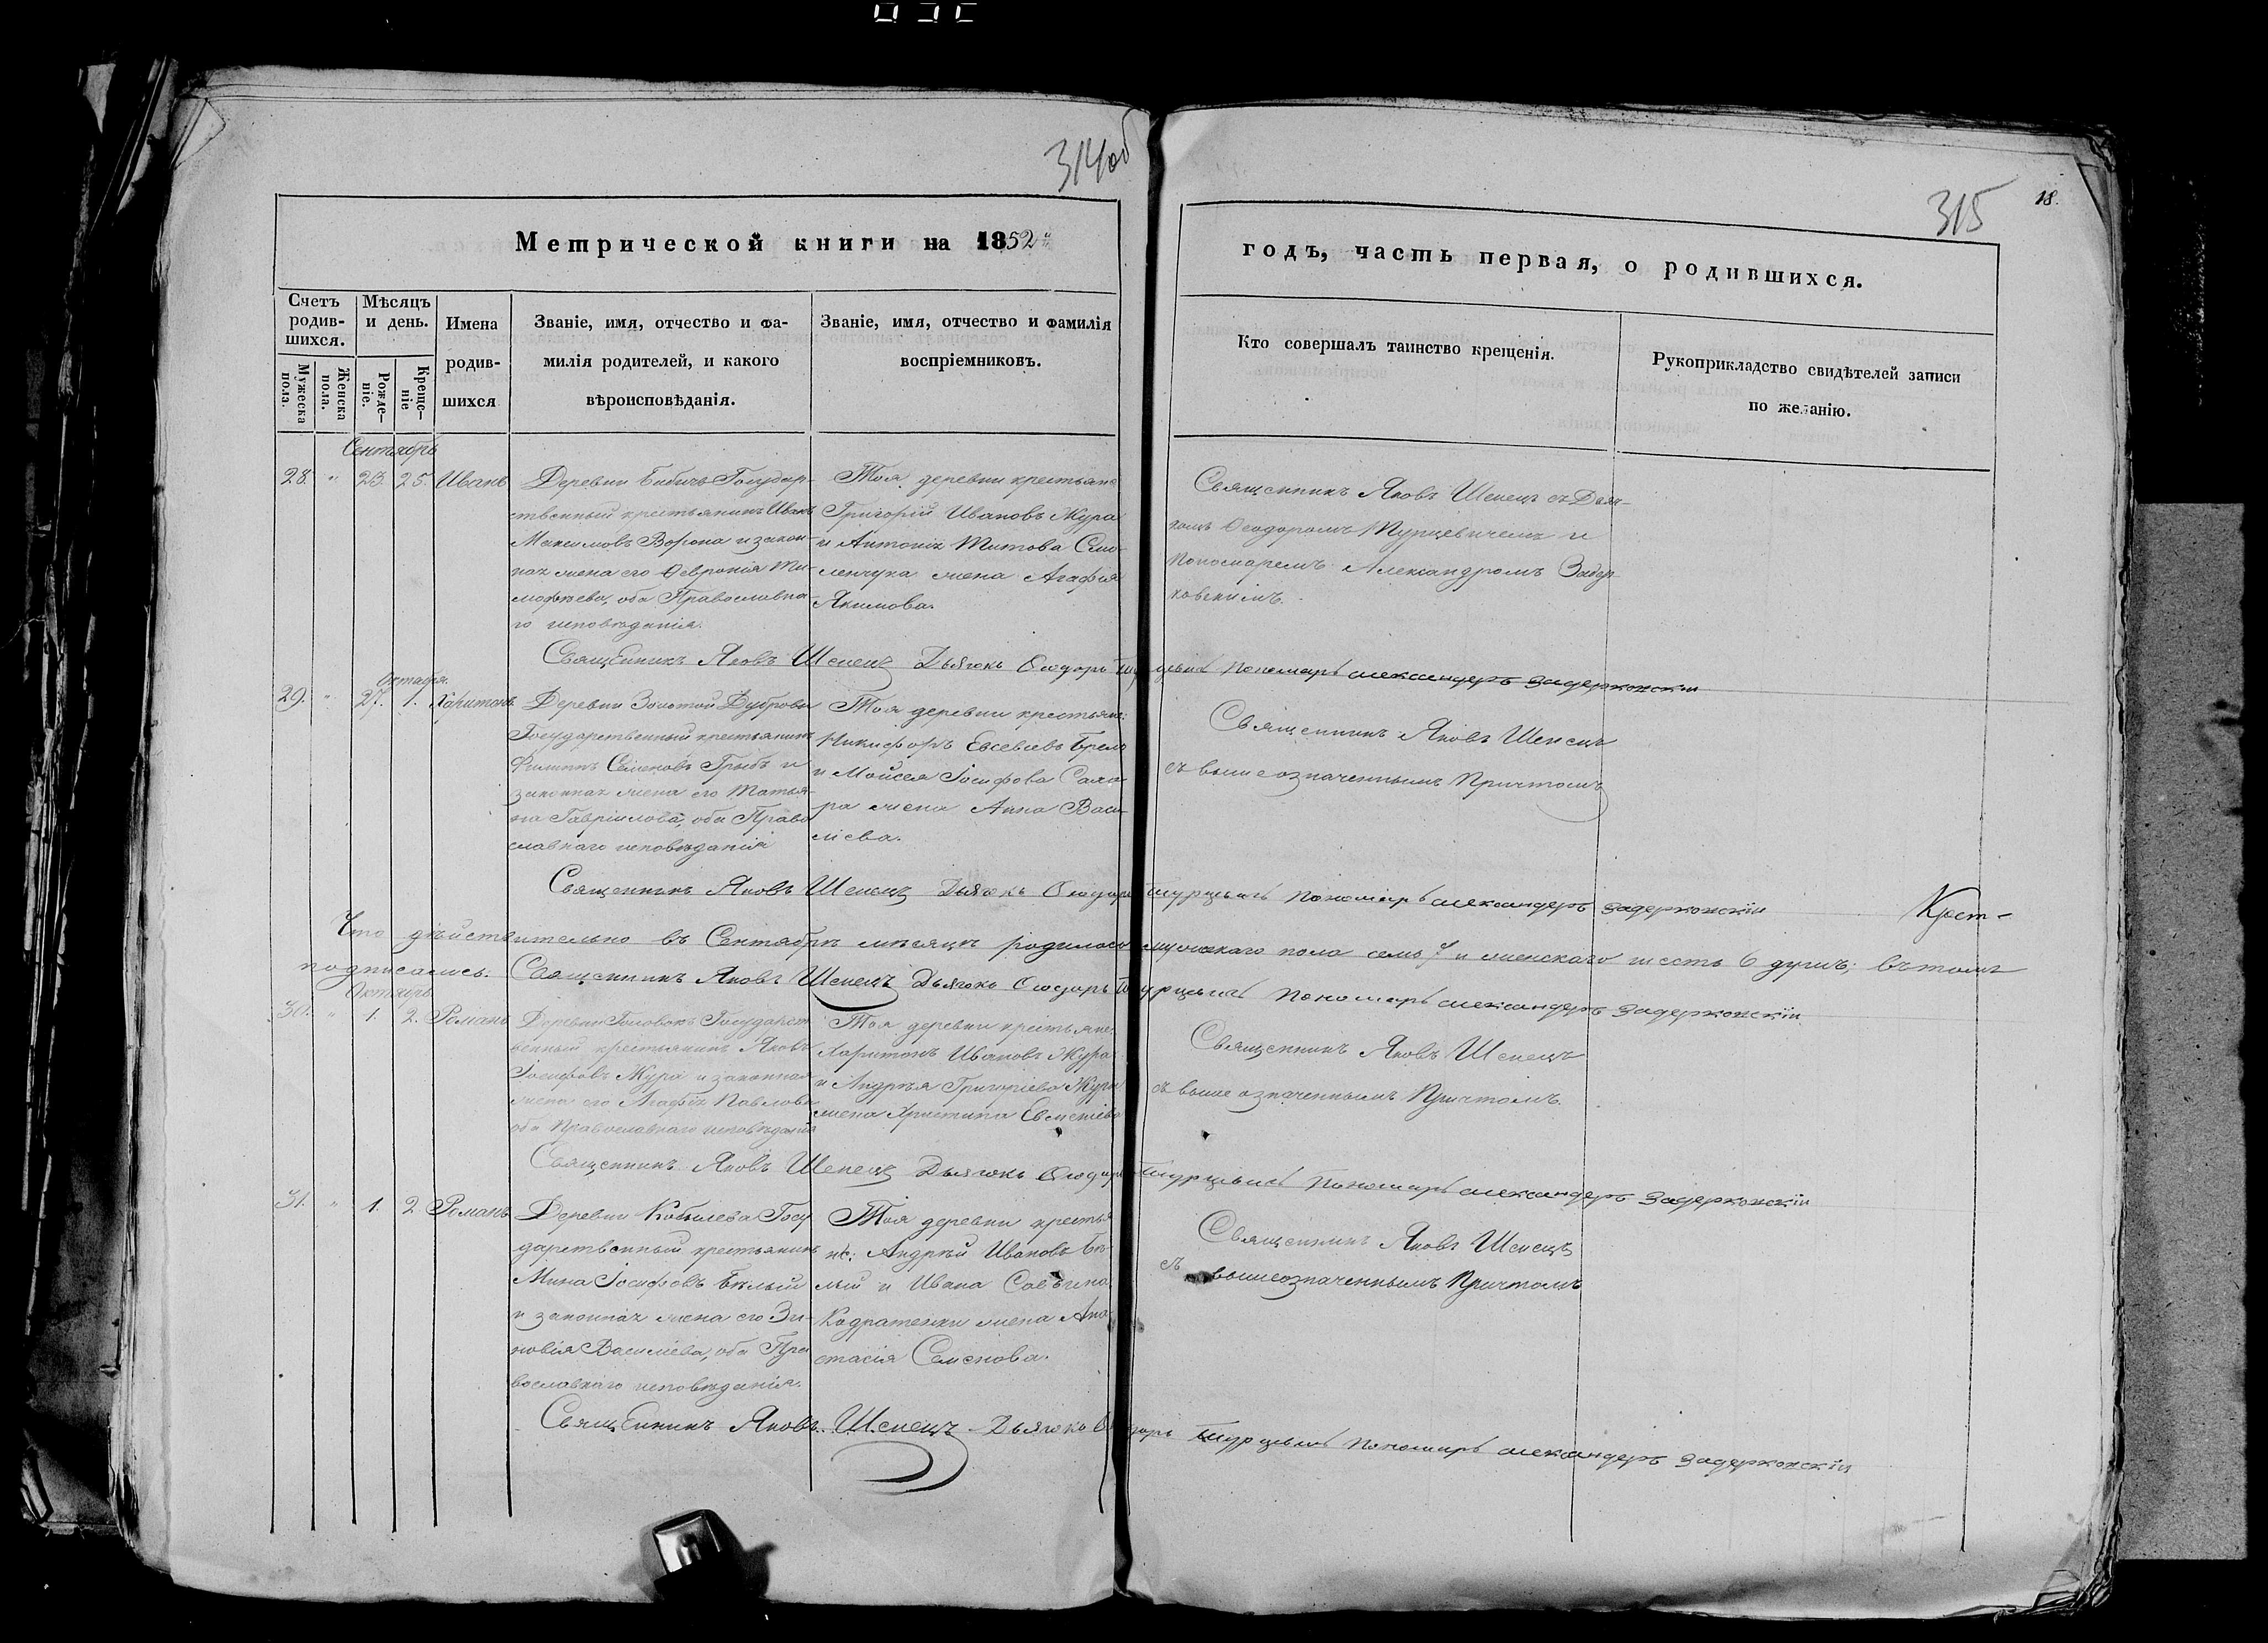 314об
315
18.
Метрической книги на 1852й
годъ, часть первая, о родившихся.
Счетъ родив-шихся.
Мужеска пола.
Женска пола.
Мѣсяцъ и день.
Рожде-ніе.
Креще-ніе
Имена родив-шихся
Званіе, имя, отчество и фа-
милія родителей, и какого
вѣроисповѣданія.
Званіе, имя, отчество и фамилія
воспріемниковъ.
Кто совершалъ таинство крещенія.
Рукоприкладство свидѣтелей записи
по желанію.
Сентябрь
28. " 23. 25. Иванъ
Деревни Государ-
ственный крестьянинъ Иванъ
Максимовъ Ворона и закон-
ная жена его Ѳевронія Ти-
мофѣева, оба Православна-
го исповѣданія.
Тоя деревни крестьяне
Григорій Ивановъ Жура
и Антонія Титова
жена Агафія
Якимова.
Священникъ Яковъ Шепецъ съ Дьяч-
комъ Ѳеодоромъ Турцевичемъ и
Пономаремъ Александромъ Задер-
ковскимъ.
Священникъ Яковъ Шепецъ Дьячекъ Ѳеодоръ Турцевичъ Пономарь Александеръ Задерковскій
Октября.
29. " 27. 1. Харитонъ
Деревни Золотой Дубровы
Государственный крестьянинъ
Филиппъ Семеновъ Грибъ и
законная жена его Татья-
на Гавріилова, оба Право
славнаго исповѣданія
Тоя деревни крестьяне:
Никифоръ Евсевіевъ
и Моисея Іосифова
жена Анна Васи-
лієва.
Священникъ Яковъ Шепецъ
съ вышеозначеннымъ Причтомъ
Священникъ Яковъ Шепецъ Дьячекъ Ѳеодоръ Турцевичъ Пономарь Александеръ Задерковскій
Что дѣйствительно въ Сентябрѣ мѣсяцѣ родилось мужескаго пола семь 7 и женскаго шесть 6 душъ; въ томъ
подписались: Священникъ Яковъ Шепецъ Дьячекъ Ѳеодоръ Турцевичъ Пономарь Александеръ Задерковскій
Октябрь
30. " 1. 2. Романъ
Деревни Головокъ Государст
венный крестьянинъ Яковъ
Іосифовъ Жура и законная
жена его Агафія Павлова
оба Православнаго исповѣданія
Тоя деревни крестьяне:
Харитонъ Ивановъ Жура
и Андрея Григоріева Журы
жена Христина
Священникъ Яковъ Шепецъ
съ выше означеннымъ Причтомъ.
Священникъ Яковъ Шепецъ Дьячекъ Ѳеодоръ Турцевичъ Пономарь Александеръ Задерковскій
31. " 1. 2. Романъ
Деревни Кобылева Госу
дарственный крестьянинъ
Мина Іосифовъ Бѣлый
и законная жена его Зи-
новія Василіева, оба Пра
вославнаго исповѣданія.
Тоя деревни крестья
не: Андрей Ивановъ Бѣ-
лый и Ивана
жена Ана-
стасія Семенова.
Священникъ Яковъ Шепецъ
съ вышеозначеннымъ Причтомъ
Священникъ Яковъ Шепецъ Дьячекъ Ѳеодоръ Турцевичъ Пономарь Александеръ Задерковскій